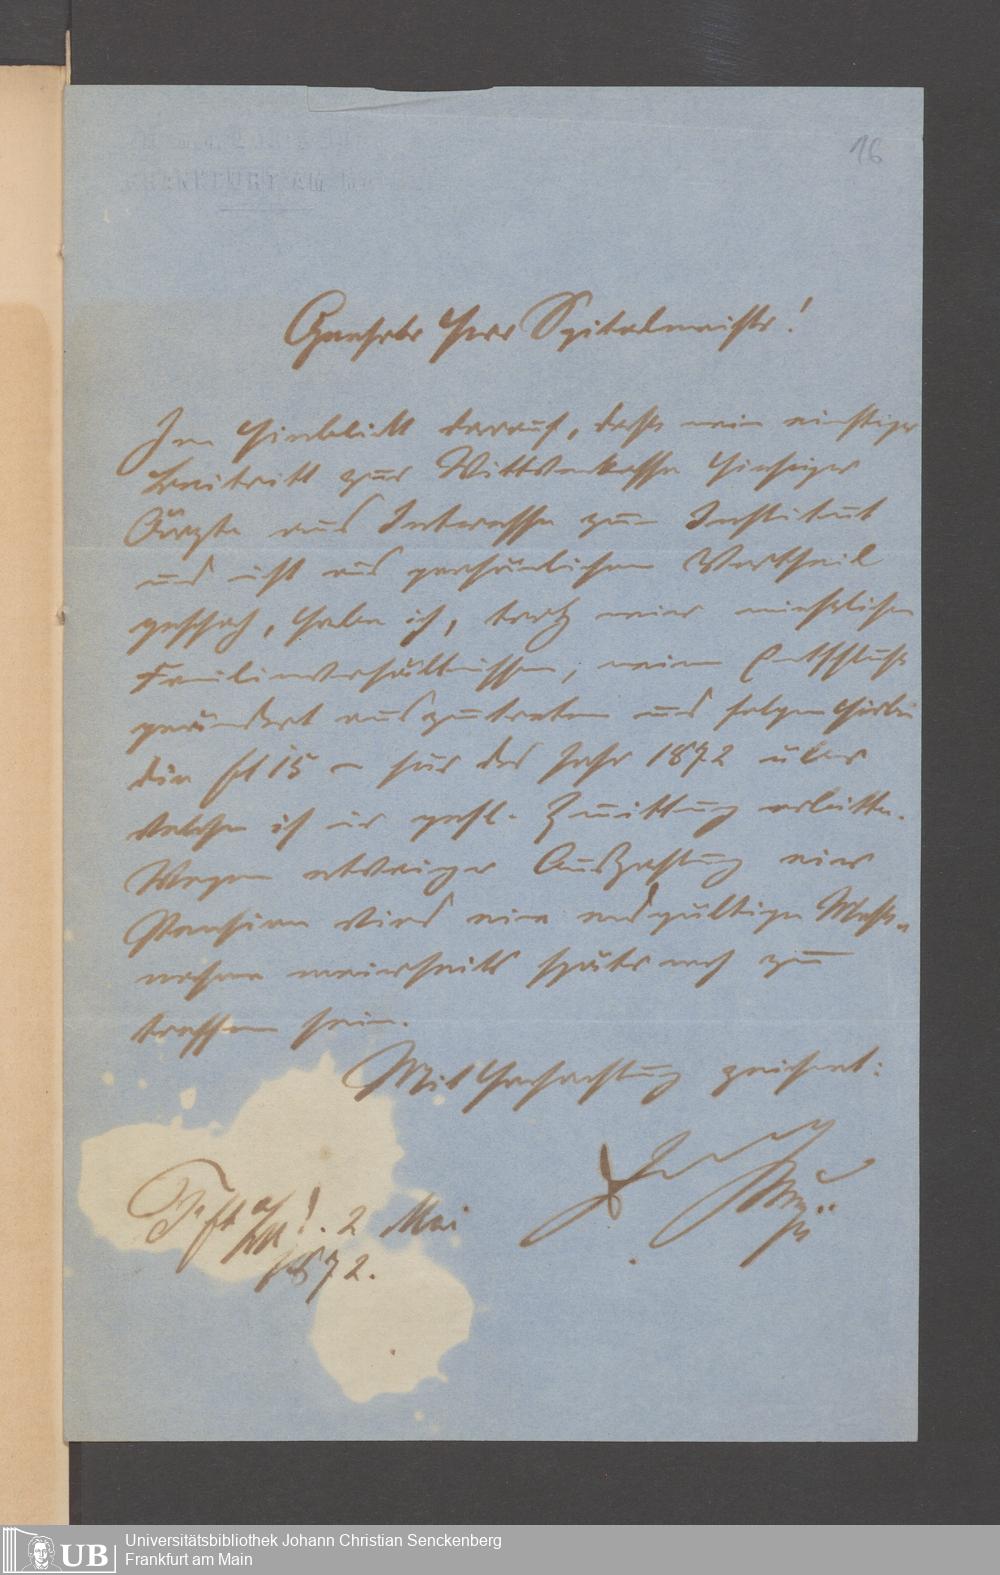 16
FRANKFURT AM MAIN
Geehrter Herr Spitalmeister!
Im Hinblick darauf, dass mein einstiger
Beitritt zur Wittwenkasse hiesiger
Ärzte aus Interesse zum Institut
und nicht aus persönlichem Vortheil
geschah, habe ich, trotz meiner
Familienverhältnissen, meinen Entschluss
geändert auszutreten und folgen hierbei
die fl 15 – für das Jahr 1872 über
welche ich mir gefl. Quittung erbitte.
Wegen etwaiger Auszahlung einer
Pension wird eine endgültige Mass-
nahme meinerseits später noch zu
treffen sein.
Mit Hochachtung zeichnet:
Fft a/M. 2 Mai
1872.
UB
Universitätsbibliothek Johann Christian Senckenberg
Frankfurt am Main